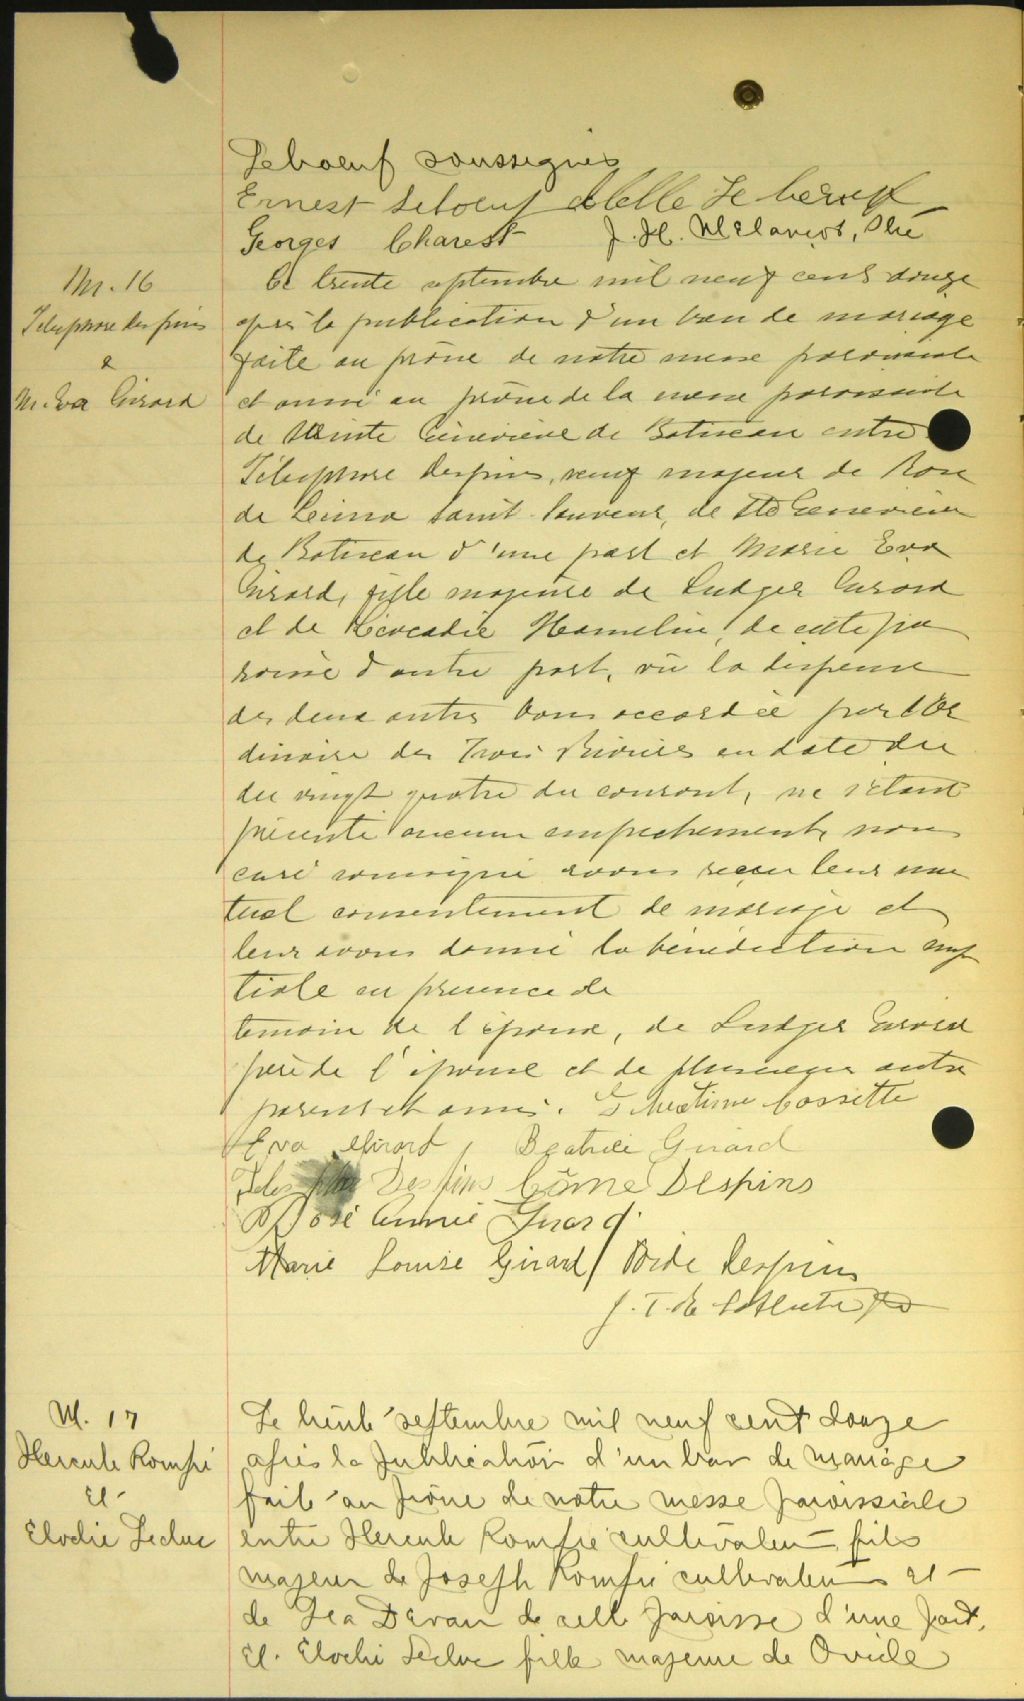 Leboeuf soussignés
Ernest Leboeuf Adelle Leboeuf
Georges Charest J. H. Melançon, Ptre
M. 16
Telesphore Despins
&
M. Eva Girard
Ce trente septembre mil neuf cent douze
après la publication d'un ban de mariage
faite au prône de notre messe paroissiale
et aussi au prône de la messe paroissiale
de Sainte Geneviève de Batiscan entre
Télesphore Despins, veuf majeur de Rose
de Leima Saint Sauveur, de Ste Geneviève
de Batiscan d'une part et Marie Eva
Girard, fille majeure de Ludger Girard
et de Léocadie Hamelin, de cette pa
roisse d'autre part, vû la dispense
des deux autres bans accordée par l'Or
dinaire des Trois Rivières en date du
du vingt quatre du courant, ne s'étant
présenté aucun empêchement, nous
curé soussigné avons reçu leur mu
tuel consentement de mariage et
leur avons donné la bénédiction nup
tiale en présence de
temoin de l'époux, de Ludger Girard
père de l'épouse et de plusieurs autre
parents et amis. Cossette
Eva Girard, Beatrice Girard
Despins Côme Despins
Rose Annie Girard
Marie Louise Girard / Despins
J. T. E.
M. 17
Hercule Rompré
et
Elodie Leduc
Le trente septembre mil neuf cent douze
après la publication d'un ban de mariage
faite au prône de notre messe paroissiale
entre Hercule Rompré cultivateur fils
majeur de Joseph Rompré cultivateur et
de Léa Devau de cette paroisse d'une part,
et Elodie Leduc fille majeure de Ovide